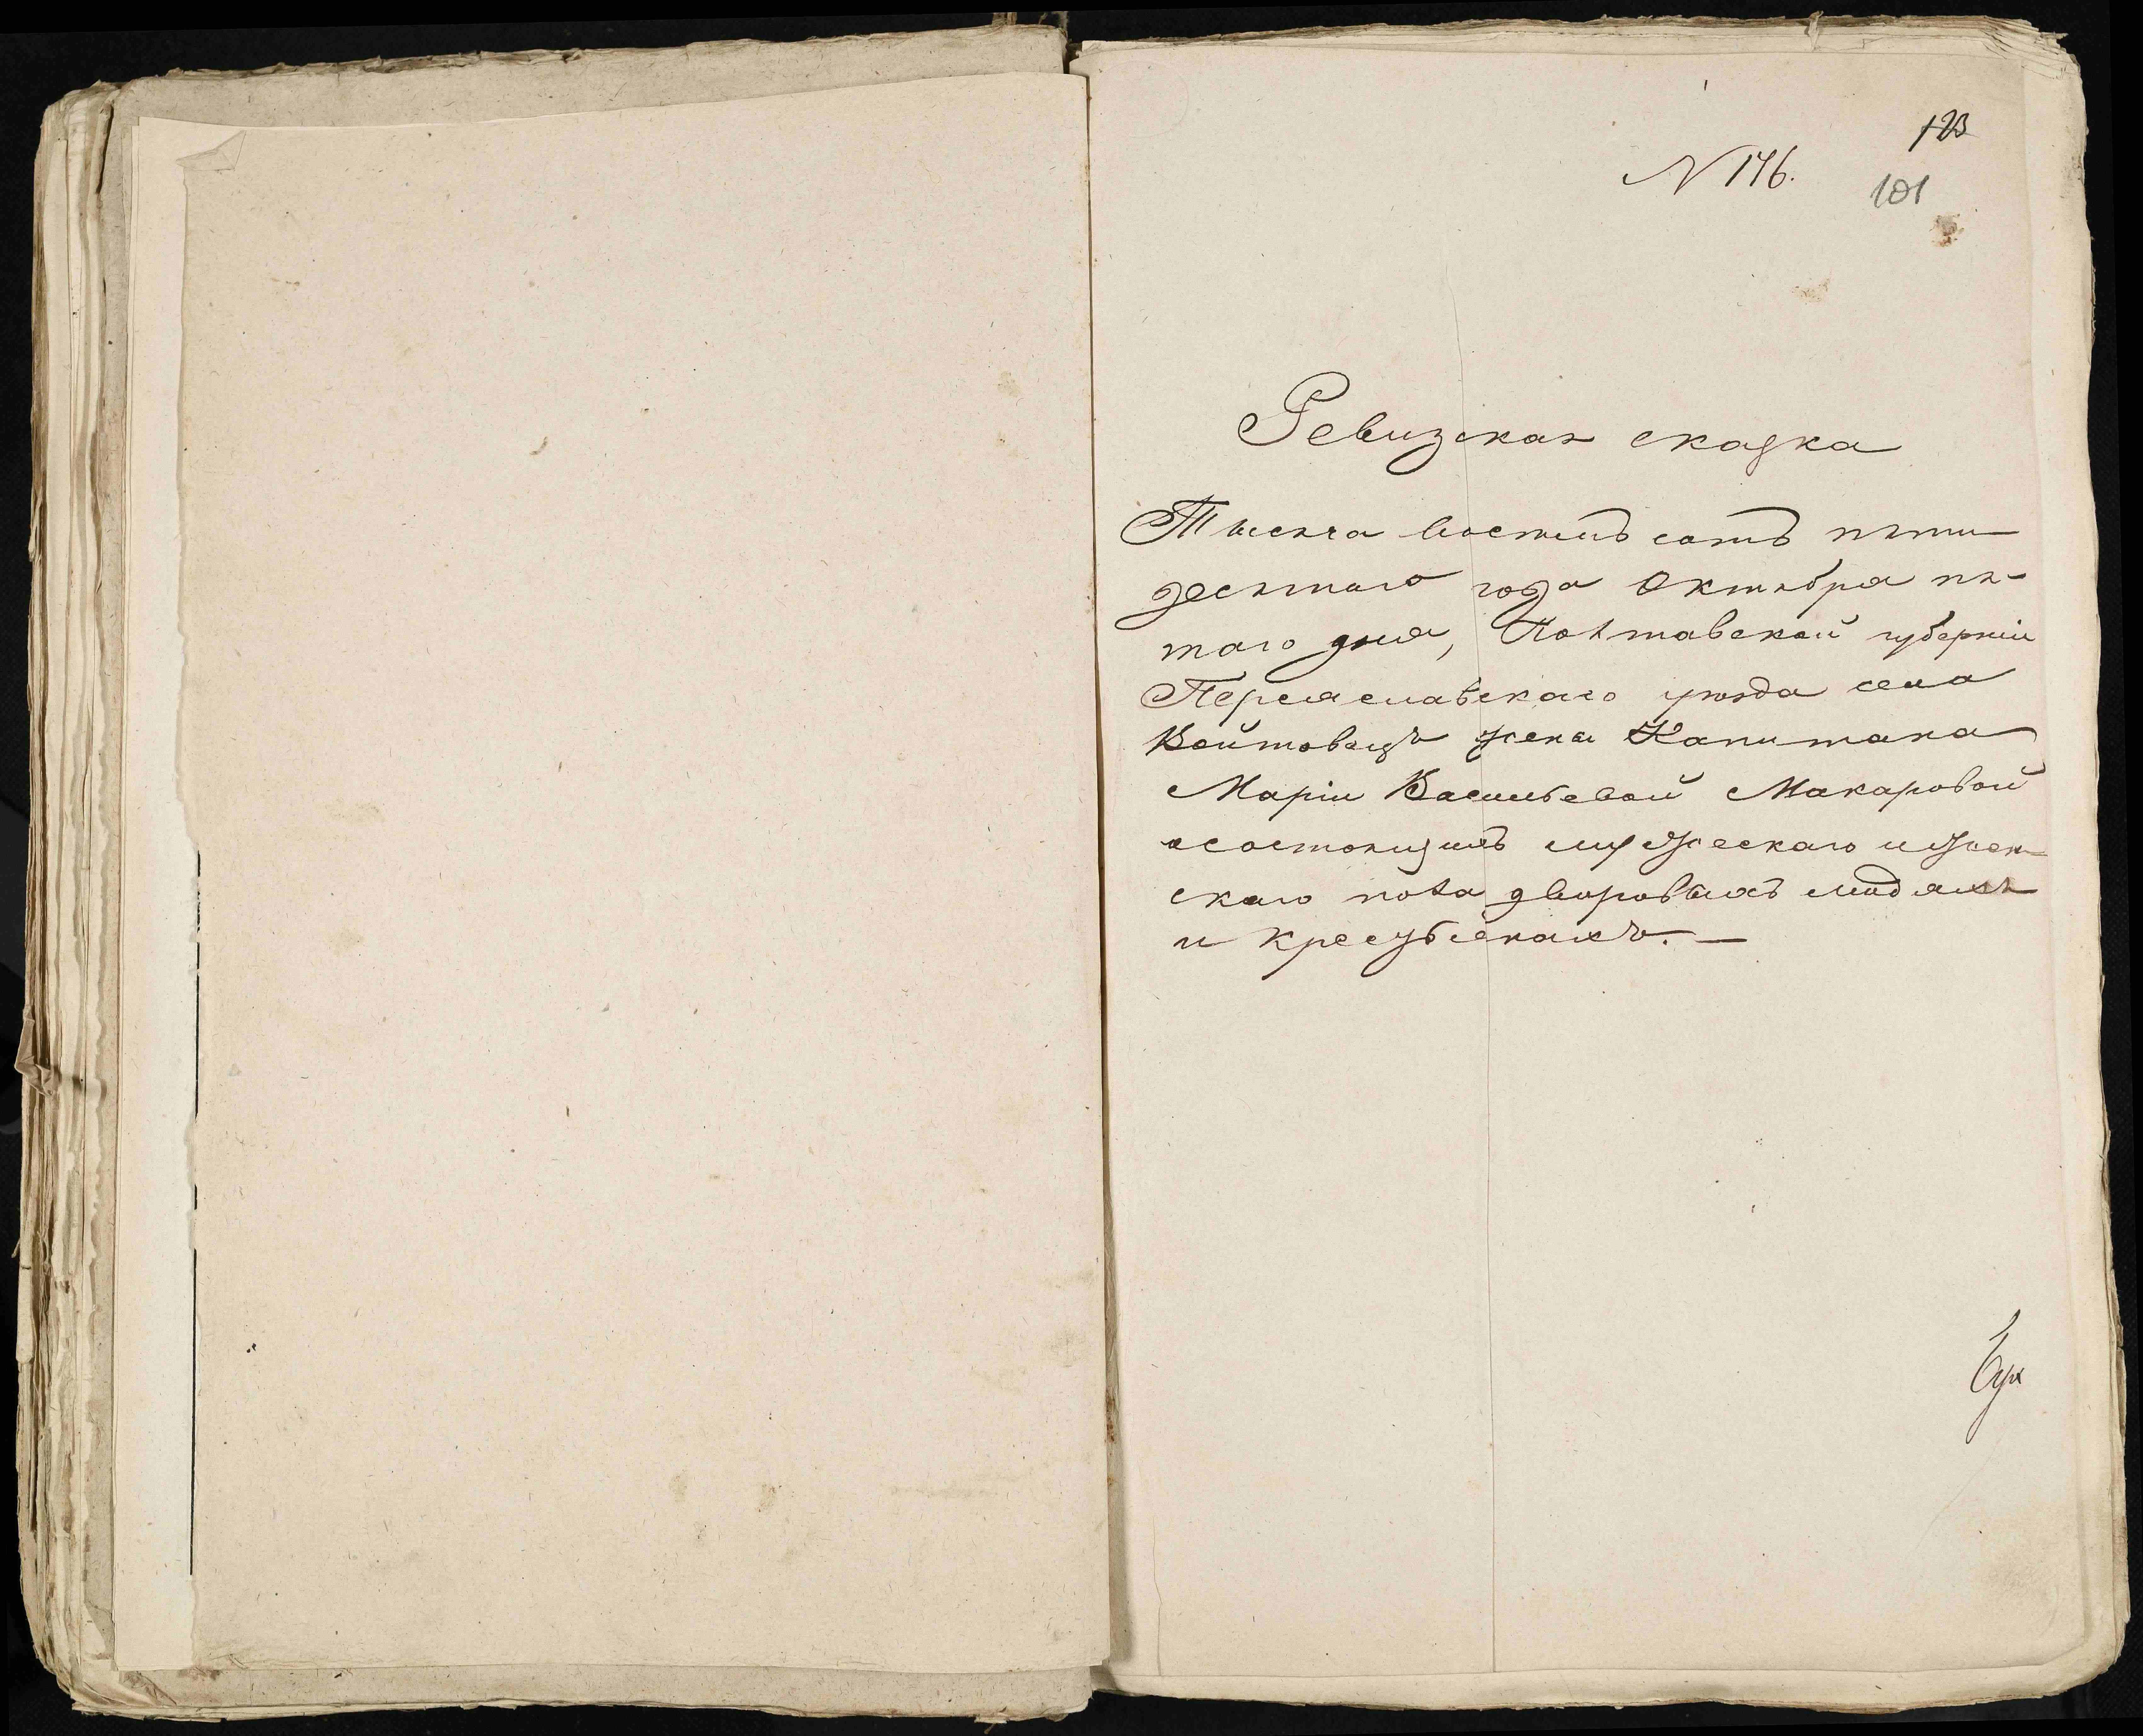 123
N 176.
101
Ревизская сказка
Тысяча восемь сотъ пяти
десятаго года Октября пя-
таго дня, Полтавской губерніи
Переяславскаго уѣзда села
Войтовецъ жены Капитана
Маріи Васильевой Макаровой
о состоящихъ мужескаго и жен
скаго пола дворовыхъ людяхъ
и крестьянахъ. —